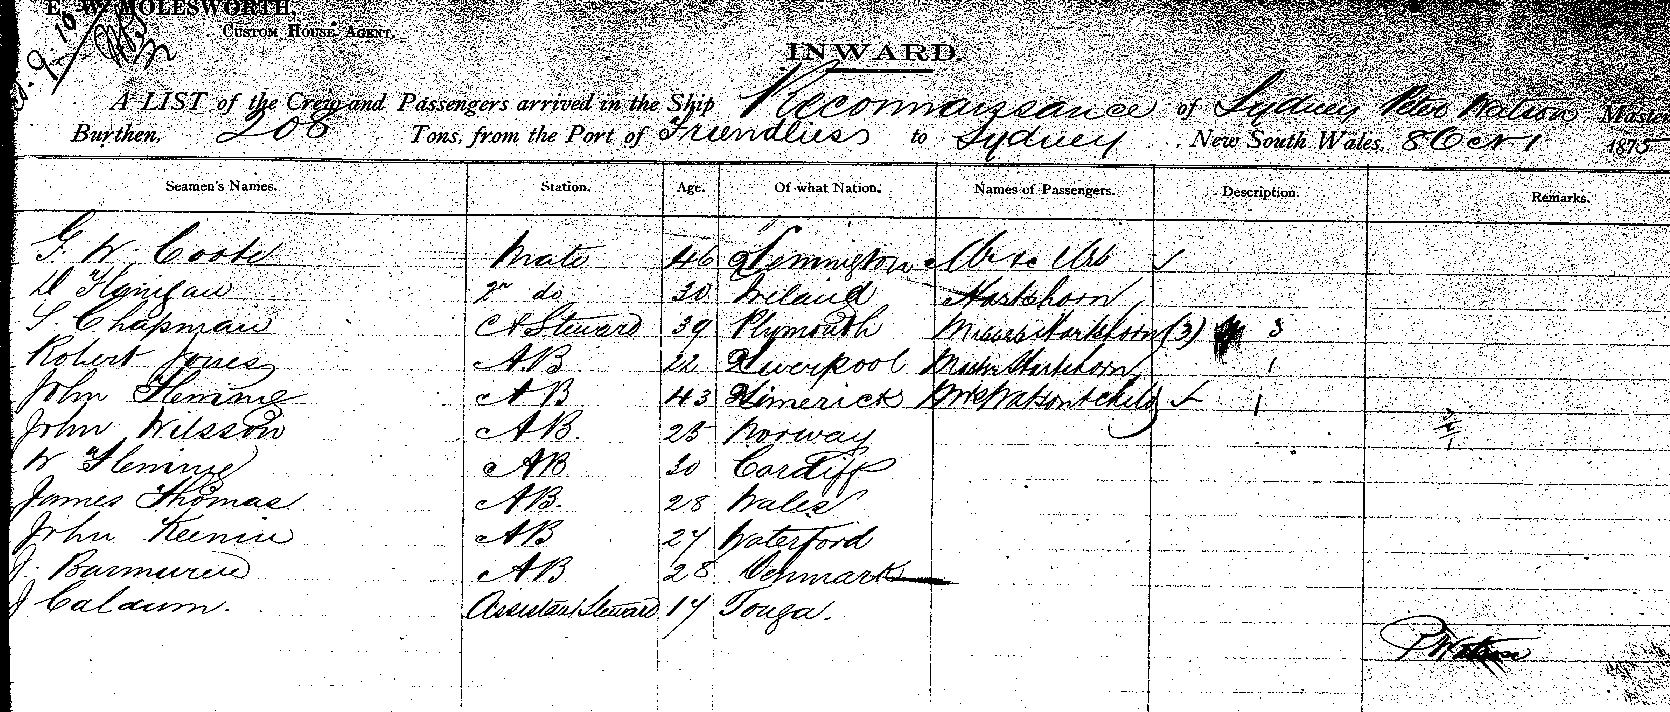 E. W. MOLESWORTH.
CUSTOM HOUSE AGENT.
INWARD.
A LIST of the Crew and Passengers arrived in the Ship Reconnaissance of Sydney Peter Watson Master
Burthen, 208 Tons, from the Port of Friendlies to Sydney New South Wales. 8 Oct 1875
Seamen's Names. Station. Age. Of what Nation. Names of Passengers. Description. Remarks.
G. W. Coote Mate 46 Lemington Mr & Mrs
D Flanigan 2nd do 30 Ireland Harkhorn
S Chapman C & Steward 39 Plymouth Misses Harkhorn (3) 3
Robert Jones AB 22 Liverpool Harkhorn 1
John Flemme AB 43 Limerick Mrs Watson & child 1
John Wilsson AB. 25 Norway
W Flemme AB 30 Cardiff
James Thomas AB. 28 Wales
John Keenin AB 27 Waterford
J. AB 28 Denmark
J Caldum. Assistant Steward 17 Tonga.
P Watson